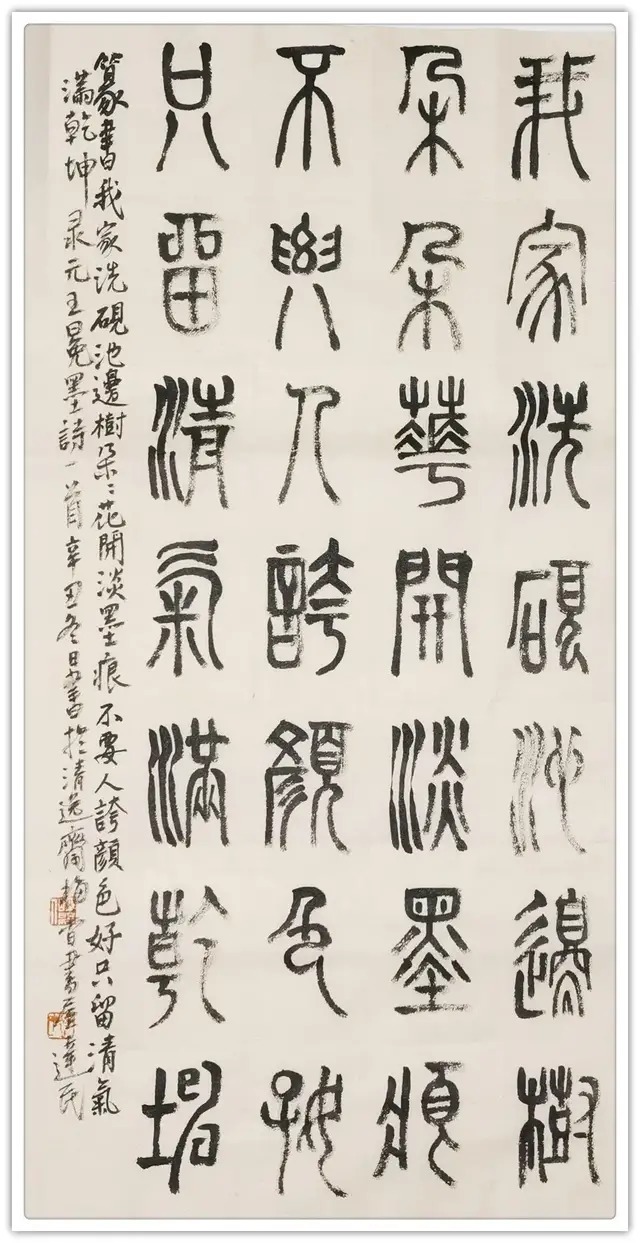 我家洗硯池邊樹
朵朵華開淡墨痕
不要人誇顏色好
只留清氣滿乾坤
篆書我家洗硯池邊樹朵〻花開淡墨痕不要人誇顏色好只留清氣
滿乾坤 录元王冕墨詩一首辛丑冬日書於清逸齋 書 達民